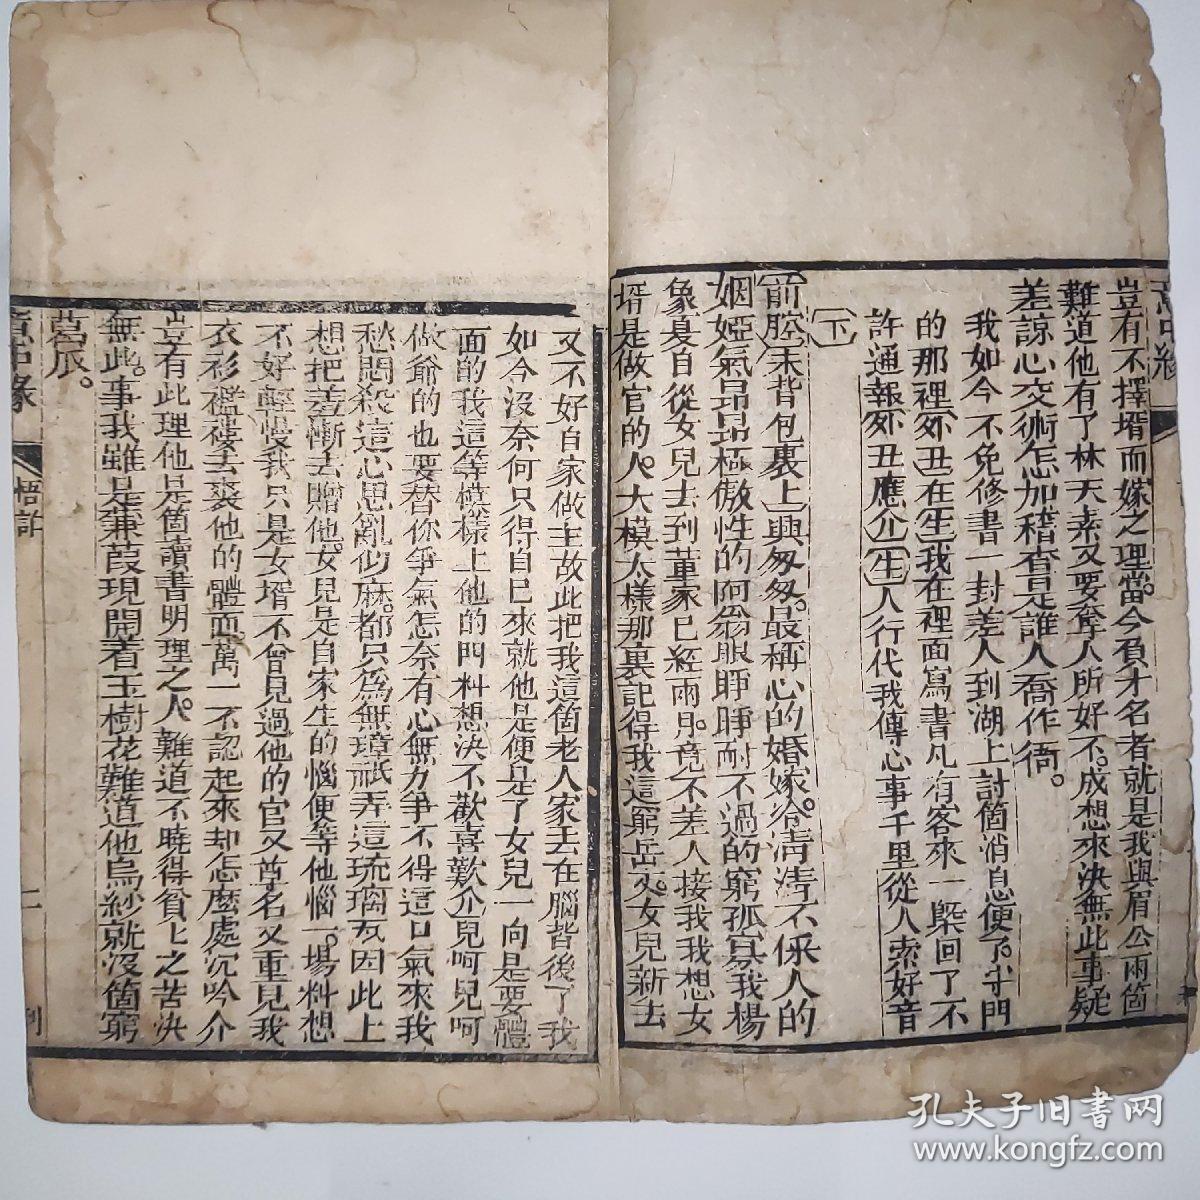 意中緣
豈有不擇壻而嫁之理當今負才名者就是我與眉公兩箇
難道他有了林天素又要奪人所好不成想來決無此事疑
差諒心交術怎加稽查是誰人喬作衙。
我如今不免修書一封差人到湖上討箇消息便了。守門
的那裡外丑在生我在裡面寫書凡有客來一槩回了不
許通報外丑應介生人行代我傳心事千里從人索好音
下
前腔末背包裹上興匆匆。最稱心的婚嫁。冷清清不保人的
姻婭氣昂昂極傲性的阿翁眼睜睜耐不過的窮孤寡我楊
象夏自從女兒去到董家已經兩月。竟不差人接我我想女
壻是做官的人。大模大樣那裏記得我這窮岳丈。女兒新去
又不好自家做主故此把我這箇老人家丟在腦背後了我
如今沒奈何只得自己來就他是便是了女兒一向是要體
面的我這等模樣上他的門料想決不歡喜歎介兒呵兒呵
做爺的也要替你爭氣怎奈有心無力爭不得這口氣來我
愁悶殺這心思亂似麻。都只爲無璋祇弄這琉璃瓦因此上
想把羞慚去贈他。女兒是自家生的惱便等他惱一場料想
不好輕慢我只是女壻不曾見過他的官又尊名又重見我
衣衫襤褸丟喪他的體面。萬一不認起來却怎麼處沉吟介
豈有此理他是箇讀書明理之人。難道不曉得貧上之苦決
無此事我雖是蒹葭現開着玉樹花難道他烏紗就沒箇窮
葛瓜。
意中緣
悟詐
二